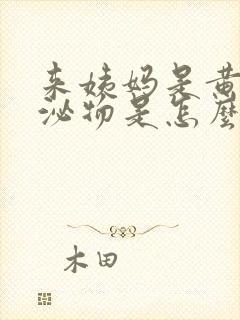 来姨妈是黄
泌物是怎麼
木田